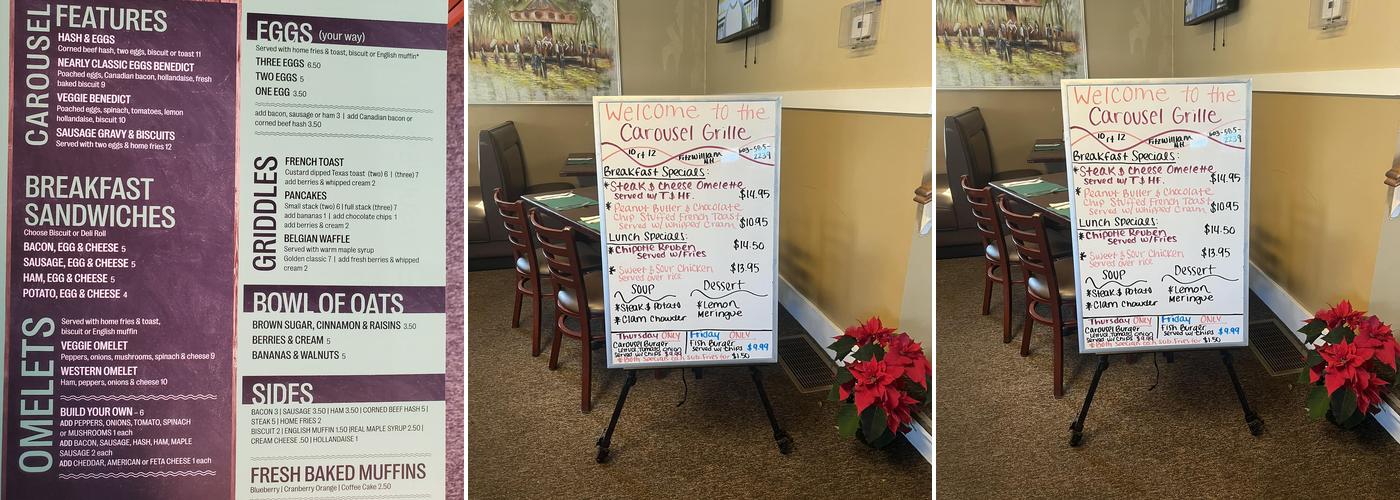 CAROUSEL
FEATURES
HASH & EGGS
Corned beef hash, two eggs, biscuit or toast 11
NEARLY CLASSIC EGGS BENEDICT
Poached eggs, Canadian bacon, hollandaise, fresh
baked biscuit 9
VEGGIE BENEDICT
Poached eggs, spinach, tomatoes, lemon
hollandaise, biscuit 10
SAUSAGE GRAVY & BISCUITS
Served with two eggs & home fries 12
BREAKFAST
SANDWICHES
Choose Biscuit or Deli Roll
BACON, EGG & CHEESE 5
SAUSAGE, EGG & CHEESE 5
HAM, EGG & CHEESE 5
POTATO, EGG & CHEESE 4
OMELETS
Served with home fries & toast,
biscuit or English muffin
VEGGIE OMELET
Peppers, onions, mushrooms, spinach & cheese 9
WESTERN OMELET
Ham, peppers, onions & cheese 10
BUILD YOUR OWN – 6
ADD PEPPERS, ONIONS, TOMATO, SPINACH
or MUSHROOMS 1 each
ADD BACON, SAUSAGE, HASH, HAM, MAPLE
SAUSAGE 2 each
ADD CHEDDAR, AMERICAN or FETA CHEESE 1 each
EGGS (your way)
Served with home fries & toast, biscuit or English muffin*
THREE EGGS 6.50
TWO EGGS 5
ONE EGG 3.50
add bacon, sausage or ham 3 | add Canadian bacon or
corned beef hash 3.50
GRIDDLES
FRENCH TOAST
Custard dipped Texas toast (two) 6 | (three) 7
add berries & whipped cream 2
PANCAKES
Small stack (two) 6 | full stack (three) 7
add bananas 1 | add chocolate chips 1
add berries & cream 2
BELGIAN WAFFLE
Served with warm maple syrup
Golden classic 7 | add fresh berries & whipped
cream 2
BOWL OF OATS
BROWN SUGAR, CINNAMON & RAISINS 3.50
BERRIES & CREAM 5
BANANAS & WALNUTS 5
SIDES
BACON 3 | SAUSAGE 3.50 | HAM 3.50 | CORNED BEEF HASH 5 |
STEAK 5 | HOME FRIES 2
BISCUIT 2 | ENGLISH MUFFIN 1.50 |REAL MAPLE SYRUP 2.50 |
CREAM CHEESE .50 | HOLLANDAISE 1
FRESH BAKED MUFFINS
Blueberry | Cranberry Orange | Coffee Cake 2.50
Welcome to the
Carousel Grille
10 rt 12 Fitzwilliam NH 603-585-2239
Breakfast Specials:
* Steak & Cheese Omelette
Served w/ T & HF. $14.95
* Peanut Butter & Chocolate
Chip Stuffed French Toast
Served w/ Whipped Cream $10.95
Lunch Specials:
* Chipotle Reuben $14.50
Served w/Fries
* Sweet & Sour Chicken $13.95
Served over rice
Soup
* Steak & Potato
* Clam Chowder
Dessert
* Lemon
Meringue
Thursday ONLY
Carousel Burger
Lettuce, Tomato, Onion
Served w/ Chips $9.99
Friday ONLY
Fish Burger
Served w/ Chips $9.99
* Both Specials can sub Fries for $1.50
Welcome to the
Carousel Grille
10 rt 12 Fitzwilliam NH 603-585-2239
Breakfast Specials:
* Steak & Cheese Omelette
Served w/ T & HF. $14.95
* Peanut Butter & Chocolate
Chip Stuffed French Toast
Served w/ Whipped Cream $10.95
Lunch Specials:
* Chipotle Reuben $14.50
Served w/Fries
* Sweet & Sour Chicken $13.95
Served over rice
Soup
* Steak & Potato
* Clam Chowder
Dessert
* Lemon
Meringue
Thursday ONLY
Carousel Burger
Lettuce, Tomato, Onion
Served w/ Chips $9.99
Friday ONLY
Fish Burger
Served w/ Chips $9.99
* Both Specials can sub Fries for $1.50